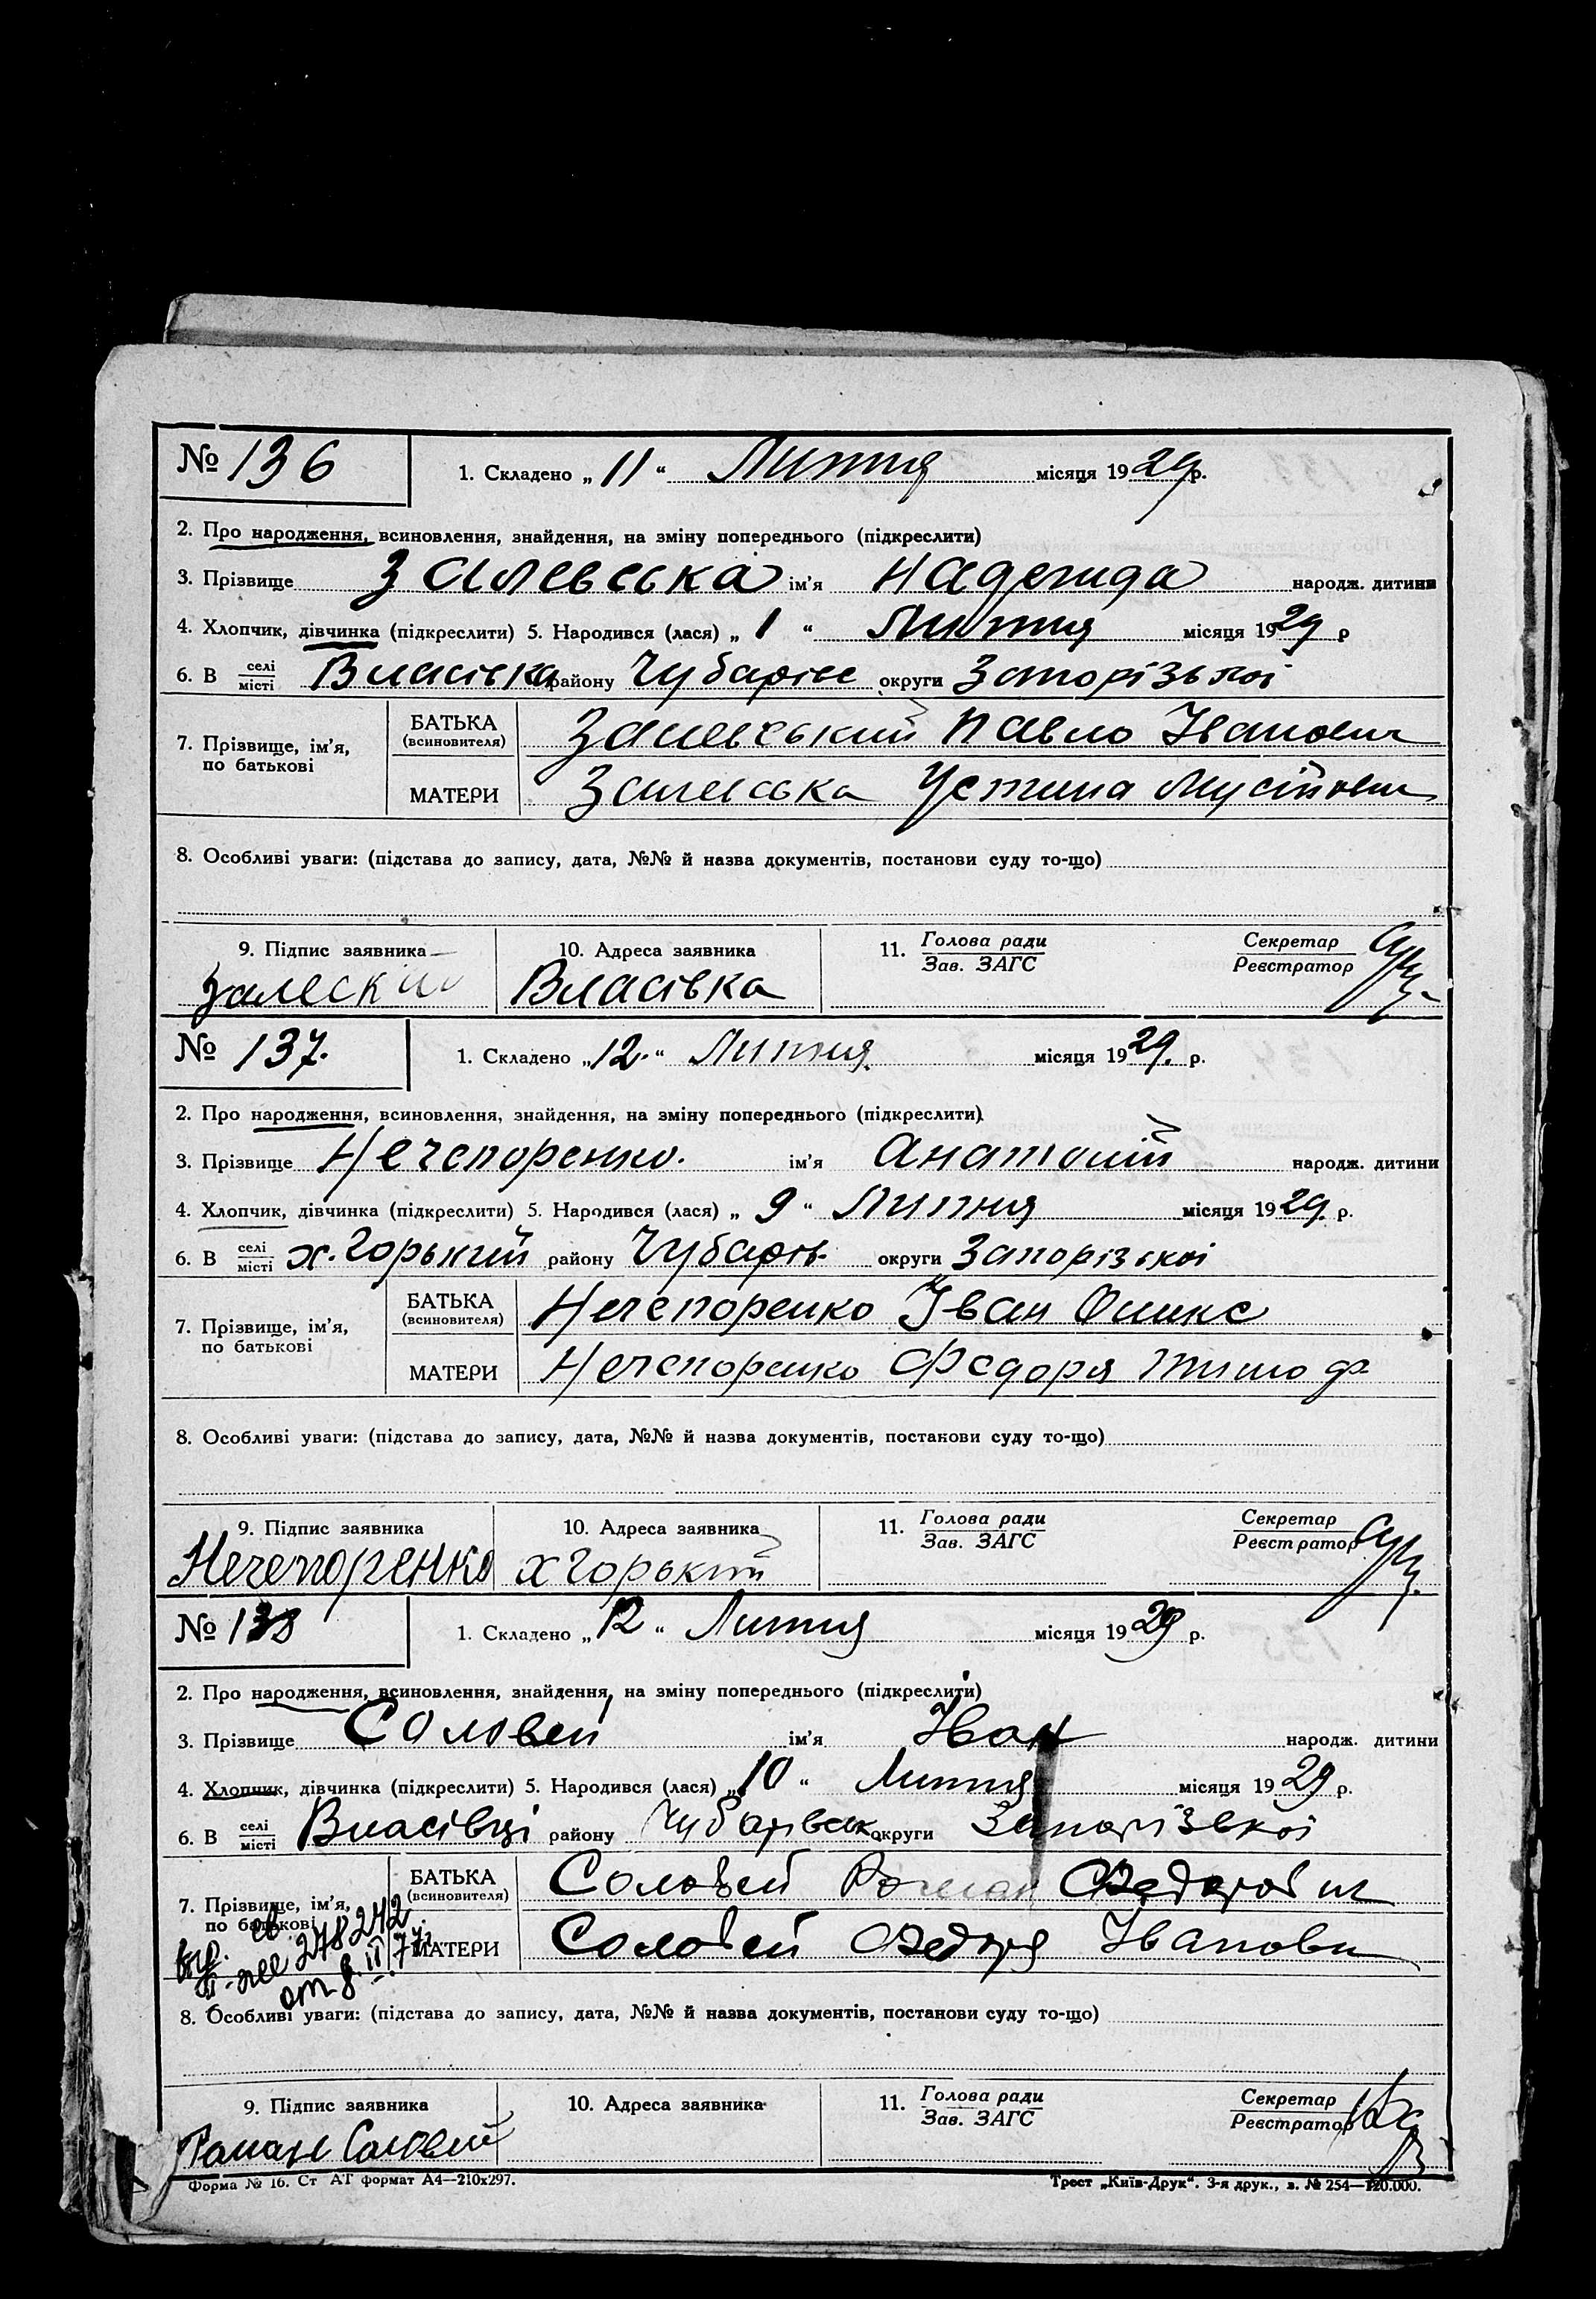 № 136 1. Складено „ 11 “ Липня місяця 1929 р.
2. Про народження, всиновлення, знайдення, на зміну попереднього (підкреслити)
3. Прізвище Залевська ім'я Надежда народж. дитини
4. Хлопчик, дівчинка (підкреслити) 5. Народився (лася) „ 1 “ Липня місяця 1929 р
6. В селі місті Власівка району Чубарівс округи Запорізької
7. Прізвище, ім'я, по батькові БАТЬКА (всиновителя) Залевський Павло Іванович
МАТЕРИ Залевська Устина
8. Особливі уваги: (підстава до запису, дата, №№ й назва документів, постанови суду то-що)
9. Підпис заявника 10. Адреса заявника 11. Голова ради Зав. ЗАГС Секретар Реєстратор
Залеский Власівка
№ 137. 1. Складено „ 12. “ Липня. місяця 1929. р.
2. Про народження, всиновлення, знайдення, на зміну попереднього (підкреслити)
3. Прізвище Нечепоренко. ім'я Анатолій народж. дитини
4. Хлопчик, дівчинка (підкреслити) 5. Народився (лася) „ 9 “ Липня місяця 1929. р.
6. В селі місті х. Горький району Чубарів. округи Запорізької
7. Прізвище, ім'я, по батькові БАТЬКА (всиновителя) Нечепоренко Іван
МАТЕРИ Нечепоренко Федоря Тимоф
8. Особливі уваги: (підстава до запису, дата, №№ й назва документів, постанови суду то-що)
9. Підпис заявника 10. Адреса заявника 11. Голова ради Зав. ЗАГС Секретар Реєстратор
Нечепоренко х Горький
№ 138 1. Складено „ 12 “ Липня місяця 1929 р.
2. Про народження, всиновлення, знайдення, на зміну попереднього (підкреслити)
3. Прізвище Соловей ім'я Іван народж. дитини
4. Хлопчик, дівчинка (підкреслити) 5. Народився (лася) „ 10 “ Липня місяця 1929 р.
6. В селі місті Власівці району Чубарівськ округи Запорізької
7. Прізвище, ім'я, по батькові БАТЬКА (всиновителя) Соловей Роман Федорович
МАТЕРИ Соловей Федоря Івановн
278242
от 8. II. 77
8. Особливі уваги: (підстава до запису, дата, №№ й назва документів, постанови суду то-що)
9. Підпис заявника 10. Адреса заявника 11. Голова ради Зав. ЗАГС Секретар Реєстратор
Роман Соловей
Форма № 16. Ст АТ формат А4—210х297. Трест „Київ-Друк“. 3-я друк., з. № 254—120.000.